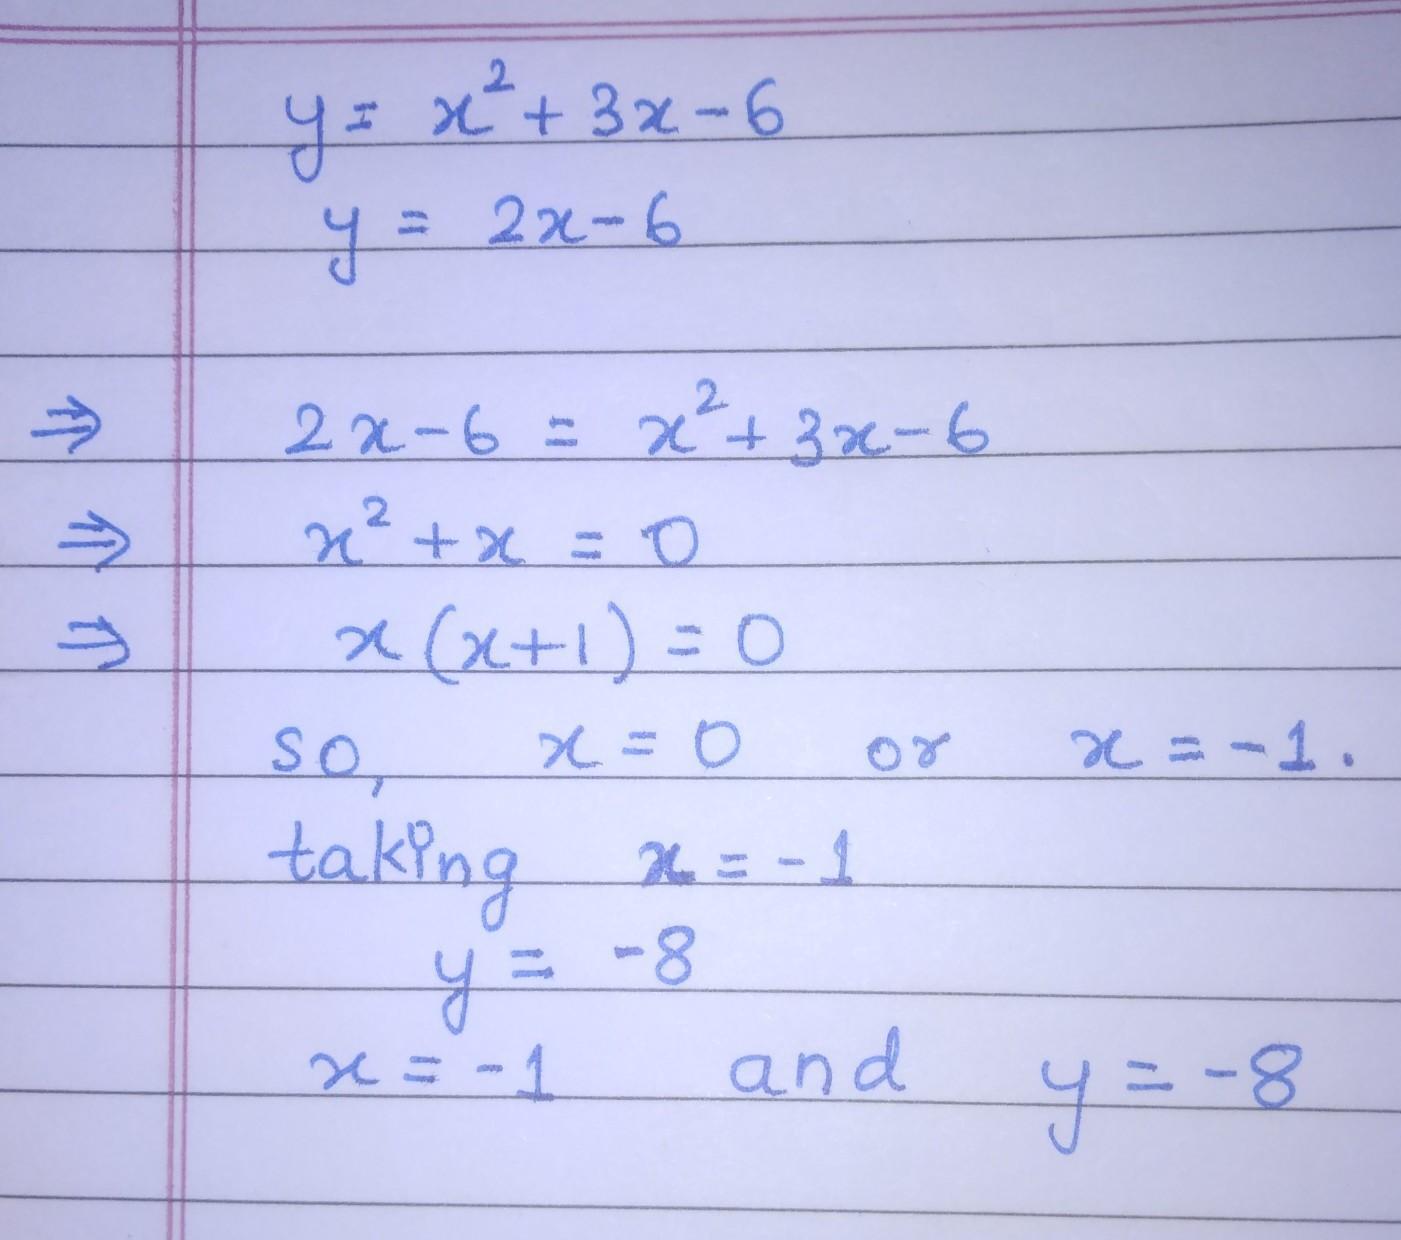 y = x² + 3x - 6
y = 2x - 6
⇒ 2x - 6 = x² + 3x - 6
⇒ x² + x = 0
⇒ x (x+1) = 0
so, x = 0 or x = -1.
taking x = -1
y = -8
x = -1 and y = -8